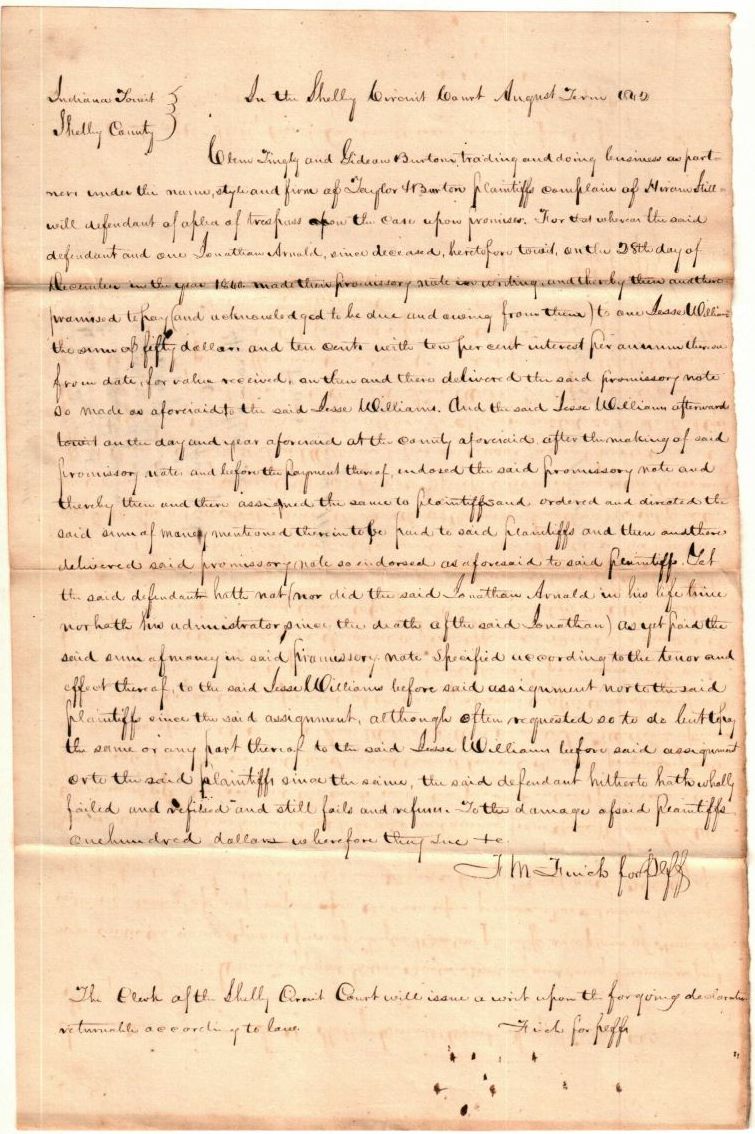 Indiana Towit } In the Shelby Circuit Court August Term 1842
Shelby County }
and Gideon Burton, trading and doing business as part-
ners under the name, style and firm of Taylor & Burton plaintiffs complain of Hiram Still-
will defendant of a plea of trespass upon the case upon promises. For that whereas the said
defendant and one Jonathan Arnold, since deceased, heretofore towit, on the 28th day of
December in the year 1840 made their promissory note in writing, and thereby then and there
promised to pay (and acknowledged to be due and owing from them) to one Jesse Williams
the sum of fifty dollars and ten cents with ten per cent interest per annum thereon
from date, for value received, an then and there delivered the said promissory note
so made as aforesaid to the said Jesse Williams. And the said Jesse Williams afterward
towit on the day and year aforesaid at the county aforesaid, after the making of said
promissory note, and before the payment thereof, indosed the said promissory note and
thereby then and there assigned the same to plaintiffs and ordered and directed the
said sum of money mentioned therein to be paid to said plaintiffs and then and there
delivered said promissory note so endorsed as aforesaid to said plaintiffs. Yet
the said defendant hath not (nor did the said Jonathan Arnold in his life time
nor hath his administrator, since the death of the said Jonathan) as yet paid the
said sum of money in said promissory note specified according to the tenor and
effect thereof, to the said Jesse Williams before said assignment nor to the said
plaintiffs since the said assignment, although often requested so to do but to pay
the same or any part thereof to the said Jesse Williams before said assignment
or to the said plaintiffs since the same, the said defendant hitherto hath wholly
failed and refused and still fails and refuses To the damage of said plaintiffs
one hundred dollars wherefore they sue &c
F M Finch for plffs
The Clerk of the Shelby Circuit Court will issue a writ upon the forgoing declaration
returnable according to law. Finch for plffs